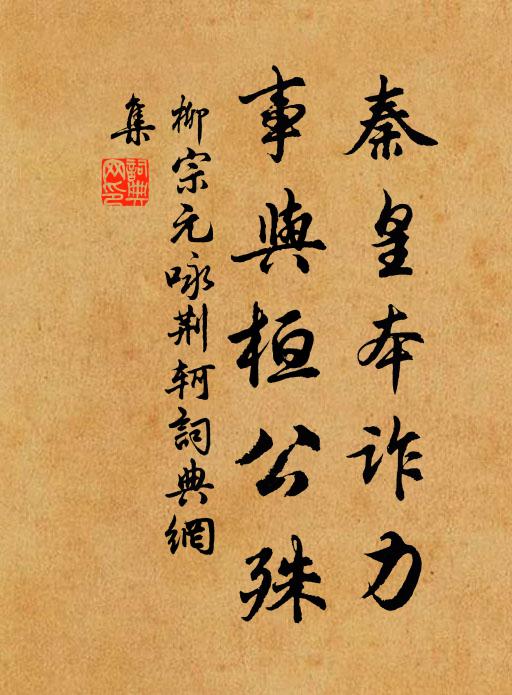 秦皇本诈力
事與桓公殊
柳宗元咏荆轲詞典網
集
詞典
网印